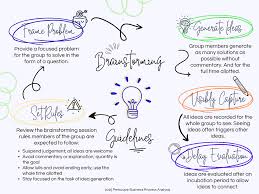 Frame Problem
Provide a focused problem
for the group to solve in the
form of a question.
Brainstorming
Guidelines
Generate Ideas
Group members generate
as many solutions as
possible without
commentary. And for the
full time allotted.
Visibly Capture
All ideas are recorded for the
whole group to see. Seeing
ideas often triggers other
ideas.
Delay Evaluation
Ideas are evaluated after
an incubation period to allow
ideas to connect
Set Rules
Review the brainstorming session
rules members of the group are
expected to follow:
Suspend judgement, all ideas are welcome
Avoid commentary or explanation; quantity is
the goal
Allow lulls and avoid ending early; use the
whole time allotted.
Stay focused on the task of idea generation